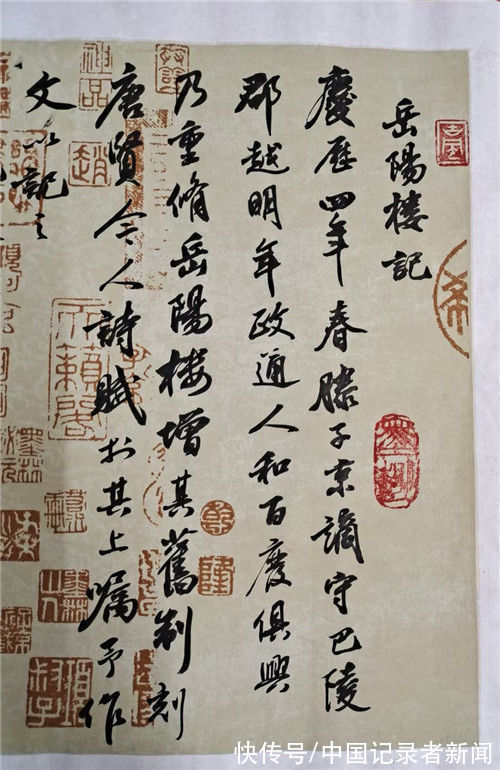 岳陽楼記
慶歷四年春滕子京謫守巴陵
郡越明年政通人和百度俱興
乃重脩岳陽楼增其舊制刻
唐賢今人詩賦於其上囑予作
文以記之
神品
趙
天籟閣
快传号/中国记录者新闻